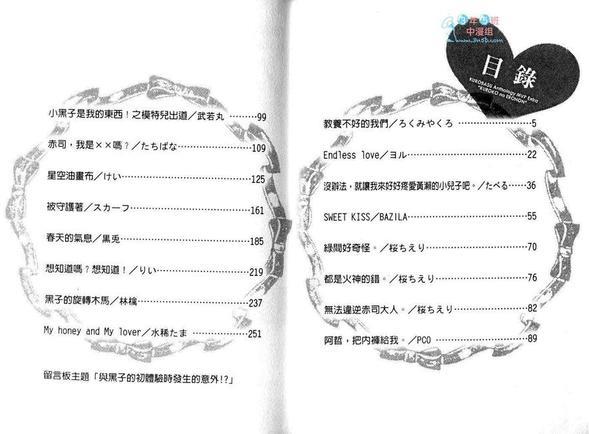 目錄
KUROBASU Anthology BEST Extra
"KUROKO no EROHON"
教養不好的我們／ろくみやくろ 5
Endless love／ヨル 22
沒辦法，就讓我來好好疼愛黃瀨的小兒子吧。／たべる 36
SWEET KISS／BAZILA 55
綠間好奇怪。／桜ちえり 70
都是火神的錯。／桜ちえり 76
無法違逆赤司大人。／桜ちえり 82
阿哲，把內褲給我。／PCO 89
小黑子是我的東西！之模特兒出道／武若丸 99
赤司，我是××嗎？／たちばな 109
星空油畫布／けい 125
被守護著／スカーフ 161
春天的氣息／黒兎 185
想知道嗎？想知道！／りい 219
黑子的旋轉木馬／林檎 237
My honey and My lover／水稀たま 251
留言板主題「與黑子的初體驗時發生的意外!?」
中漫组